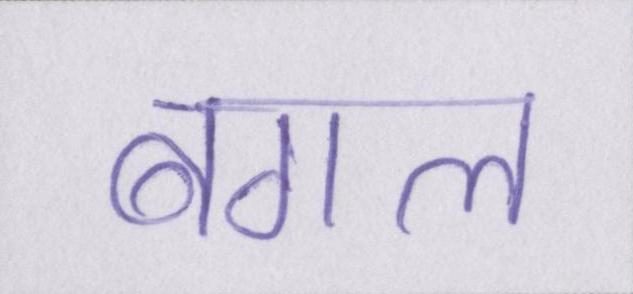 बगल